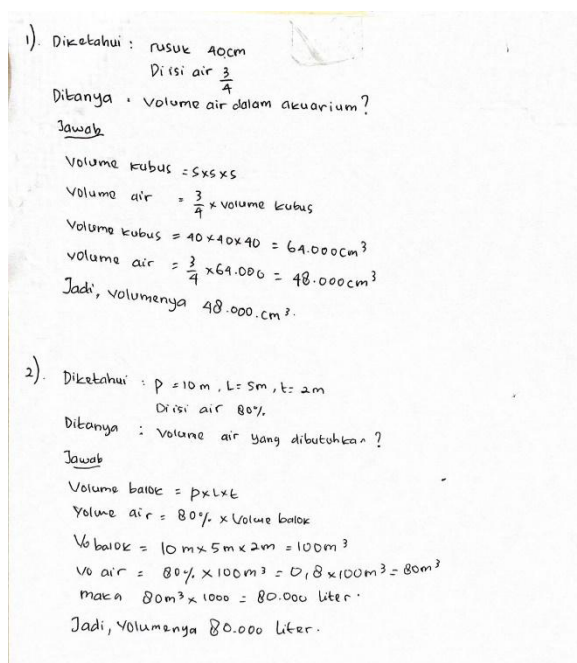 1). Diketahui : rusuk 40cm
Diisi air 3/4
Ditanya : Volume air dalam akuarium?
Jawab
Volume kubus = S×S×S
Volume air = 3/4 × volume kubus
Volume kubus = 40×40×40 = 64.000cm³
Volume air = 3/4 ×64.000 = 48.000cm³
Jadi, volumenya 48.000.cm³.
2). Diketahui : P = 10m, L= 5m, t= 2m
Diisi air 80%
Ditanya : Volume air yang dibutuhkan?
Jawab
Volume balok = P×L×t
Volume air = 80% × Volume balok
Vo balok = 10m×5m×2m = 100m³
Vo air = 80% ×100m³ = 0,8×100m³ = 80m³
maka 80m³ × 1000 = 80.000 liter.
Jadi, volumenya 80.000 liter.